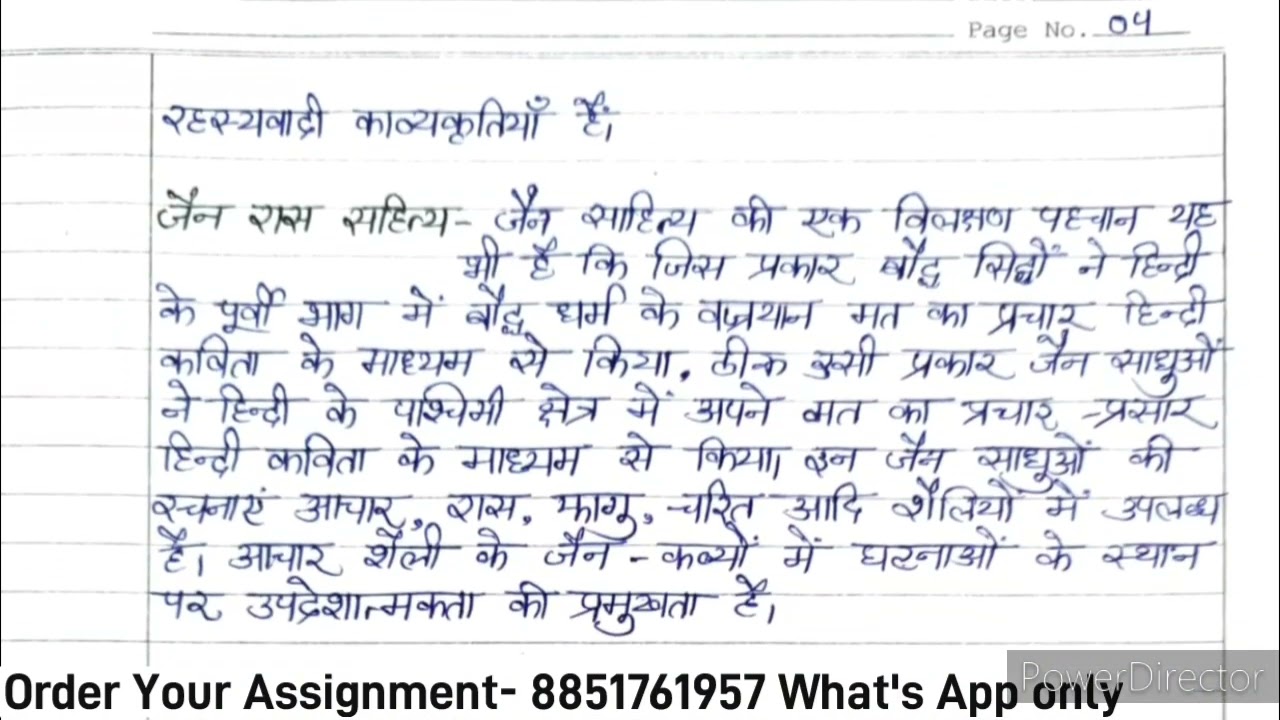 Page No. 04
रहस्यवादी काव्यकृतियाँ हैं।
जैन रास सहित्य- जैन साहित्य की एक विलक्षण पहचान यह
भी है कि जिस प्रकार बौद्ध सिद्धों ने हिन्दी
के पूर्वी भाग में बौद्ध धर्म के वज्रयान मत का प्रचार हिन्दी
कविता के माध्यम से किया, ठीक उसी प्रकार जैन साधुओं
ने हिन्दी के पाश्चिमी क्षेत्र में अपने मत का प्रचार -प्रसार
हिन्दी कविता के माध्यम से किया। इन जैन साधुओं की
रचनाएं आचार, रास, फागु, चरित आदि शैलियों में उपलब्ध
है। आचार शैली के जैन - कव्यों में घटनाओं के स्थान
पर उपदेशात्मकता की प्रमुखता है।
PowerDirector
Order Your Assignment- 8851761957 What's App only